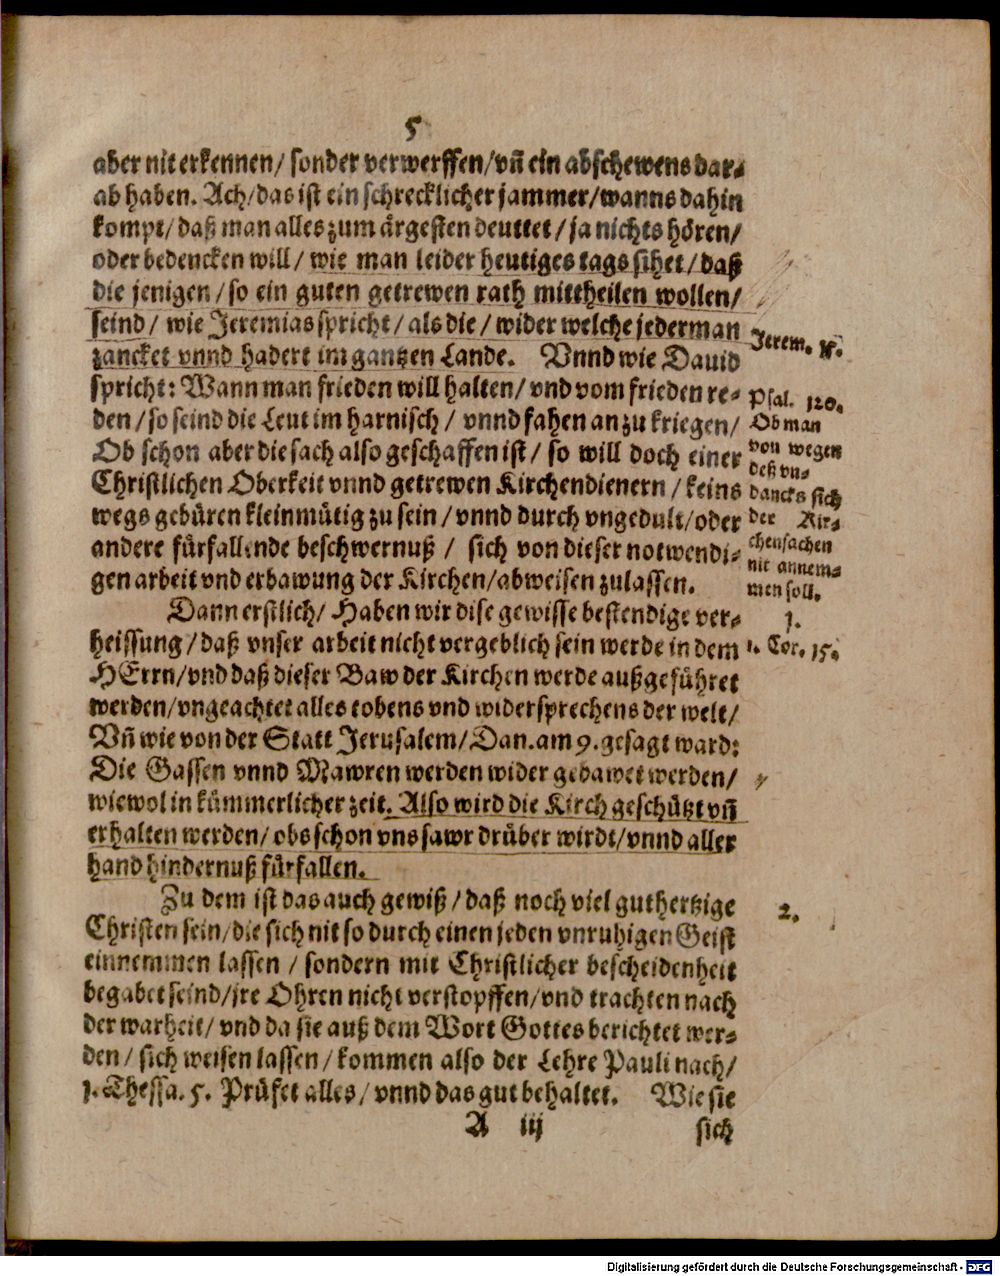 5
aber nit erkennen/ sonder verwerffen/ vñ ein abschewens dar-
ab haben. Ach/ das ist ein schrecklicher jammer/ wanns dahin
kompt/ daß man alles zum ärgesten deuttet/ ja nichts hören/
oder bedencken will/ wie man leider heutiges tags sihet/ daß
die jenigen/ so ein guten getrewen rath mittheilen wollen/
seind/ wie Jeremias spricht/ als die/ wider welche jederman
zancket vnnd hadert im gantzen Lande. Vnnd wie Dauid
spricht: Wann man frieden will halten/ vnd vom frieden re-
den/ so seind die Leut im harnisch/ vnnd fahen an zu kriegen/
Ob schon aber die sach also geschaffen ist/ so will doch einer
Christlichen Oberkeit vnnd getrewen Kirchendienern/ keins
wegs gebüren kleinmütig zu sein/ vnnd durch vngedult/ oder
andere fürfallende beschwernuß/ sich von dieser notwendi-
gen arbeit vnd erbawung der Kirchen/ abweisen zulassen.
Jerem.
Psal. 120.
Ob man
von wegen
deß vn-
dancks sich
der Kir-
chensachen
nit annem-
men soll.
Dann erstlich/ Haben wir dise gewisse bestendige ver-
heissung/ daß vnser arbeit nicht vergeblich sein werde in dem
HErrn/ vnd daß dieser Baw der Kirchen werde außgeführet
werden/ vngeachtet alles tobens vnd widersprechens der welt/
Vñ wie von der Statt Jerusalem/ Dan. am 9. gesagt ward:
Die Gassen vnnd Mawren werden wider gebawet werden/
wiewol in kümmerlicher zeit. Also wird die Kirch geschützt vñ
erhalten werden/ obs schon vns sawr drüber wirdt/ vnnd aller
hand hindernuß fürfallen.
1.
1. Cor. 15.
Zu dem ist das auch gewiß/ daß noch viel guthertzige
Christen sein/ die sich nit so durch einen jeden vnruhigen Geist
einnemmen lassen/ sondern mit Christlicher bescheidenheit
begabet seind/ jre Ohren nicht verstopffen/ vnd trachten nach
der warheit/ vnd da sie auß dem Wort Gottes berichtet wer-
den/ sich weisen lassen/ kommen also der Lehre Pauli nach/
1. Thessa. 5. Prüfet alles/ vnnd das gut behaltet. Wie sie
2.
A iij
sich
Digitalisierung gefördert durch die Deutsche Forschungsgemeinschaft - DFG